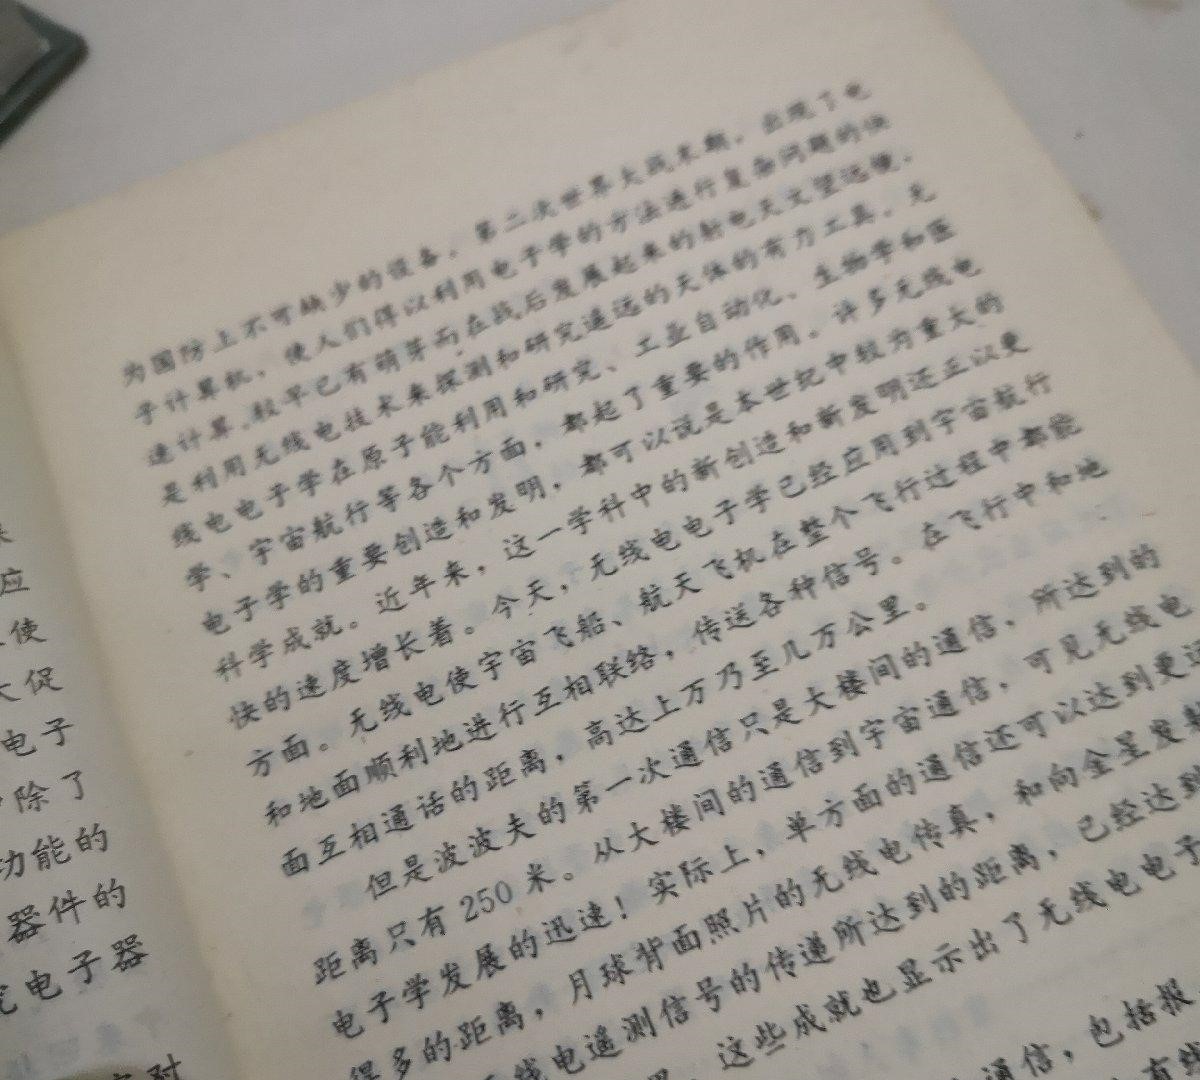 应
使
大促
电子
除了
功能的
器件的
电子器
对
为国防上不可缺少的设备。第二次世界大战末期，出现了电
子计算机，使人们得以利用电子学的方法进行复杂问题的快
速计算。较早已有萌芽而在战后发展起来的射电天文望远镜，
是利用无线电技术来探测和研究遥远的天体的有力工具。无
线电电子学在原子能利用和研究、工业自动化、生物学和医
学、宇宙航行等各个方面，都起了重要的作用。许多无线电
电子学的重要创造和发明，都可以说是本世纪中较为重大的
科学成就。近年来，这一学科中的新创造和新发明还正以更
快的速度增长着。今天，无线电电子学已经应用到宇宙航行
方面。无线电使宇宙飞船、航天飞机在整个飞行过程中都能
和地面顺利地进行互相联络，传送各种信号。在飞行中和地
面互相通话的距离，高达上万乃至几万公里。
但是波波夫的第一次通信只是大楼间的通信，所达到的
距离只有250米。从大楼间的通信到宇宙通信，可见无线电
电子学发展的迅速！实际上，单方面的通信还可以达到更远
得多的距离，月球背面照片的无线电传真，和向金星发射
线电遥测信号的传递所达到的距离，已经达到
这些成就也显示出了无线电电子
通信，包括报
有线